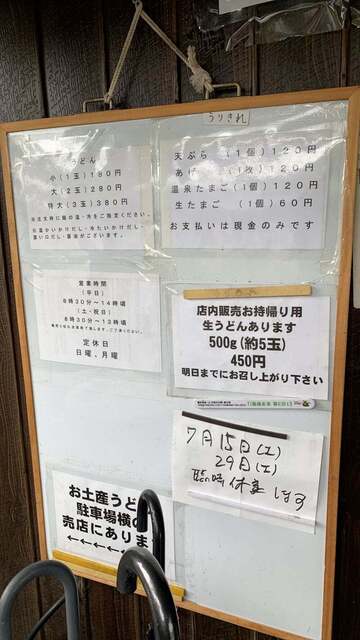 うりきれ
うどん
小(1玉)180円
大(2玉)280円
特大(3玉)380円
天ぷら(1個)120円
あげ(1枚)120円
温泉たまご(1個)120円
生たまご(1個)60円
お支払いは現金のみです
営業時間
(平日)
8時30分〜14時頃
(土・祝日)
8時30分〜13時頃
定休日
日曜、月曜
店内販売お持帰り用
生うどんあります
500g(約5玉)
450円
明日までにお召し上がり下さい
7月15日(土)
29日(土)
臨時休業します
お土産うど
駐車場横の
売店にありま
←←←←←